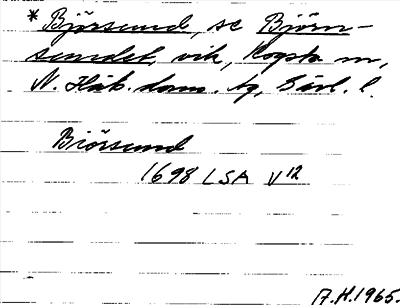 * Björsund, se Björn-
sundet, vik, Hogsta sn,
N. Håk. doms. tg, Gävl. l.
Biörsund
1698 LSA V12
A.H. 1965.